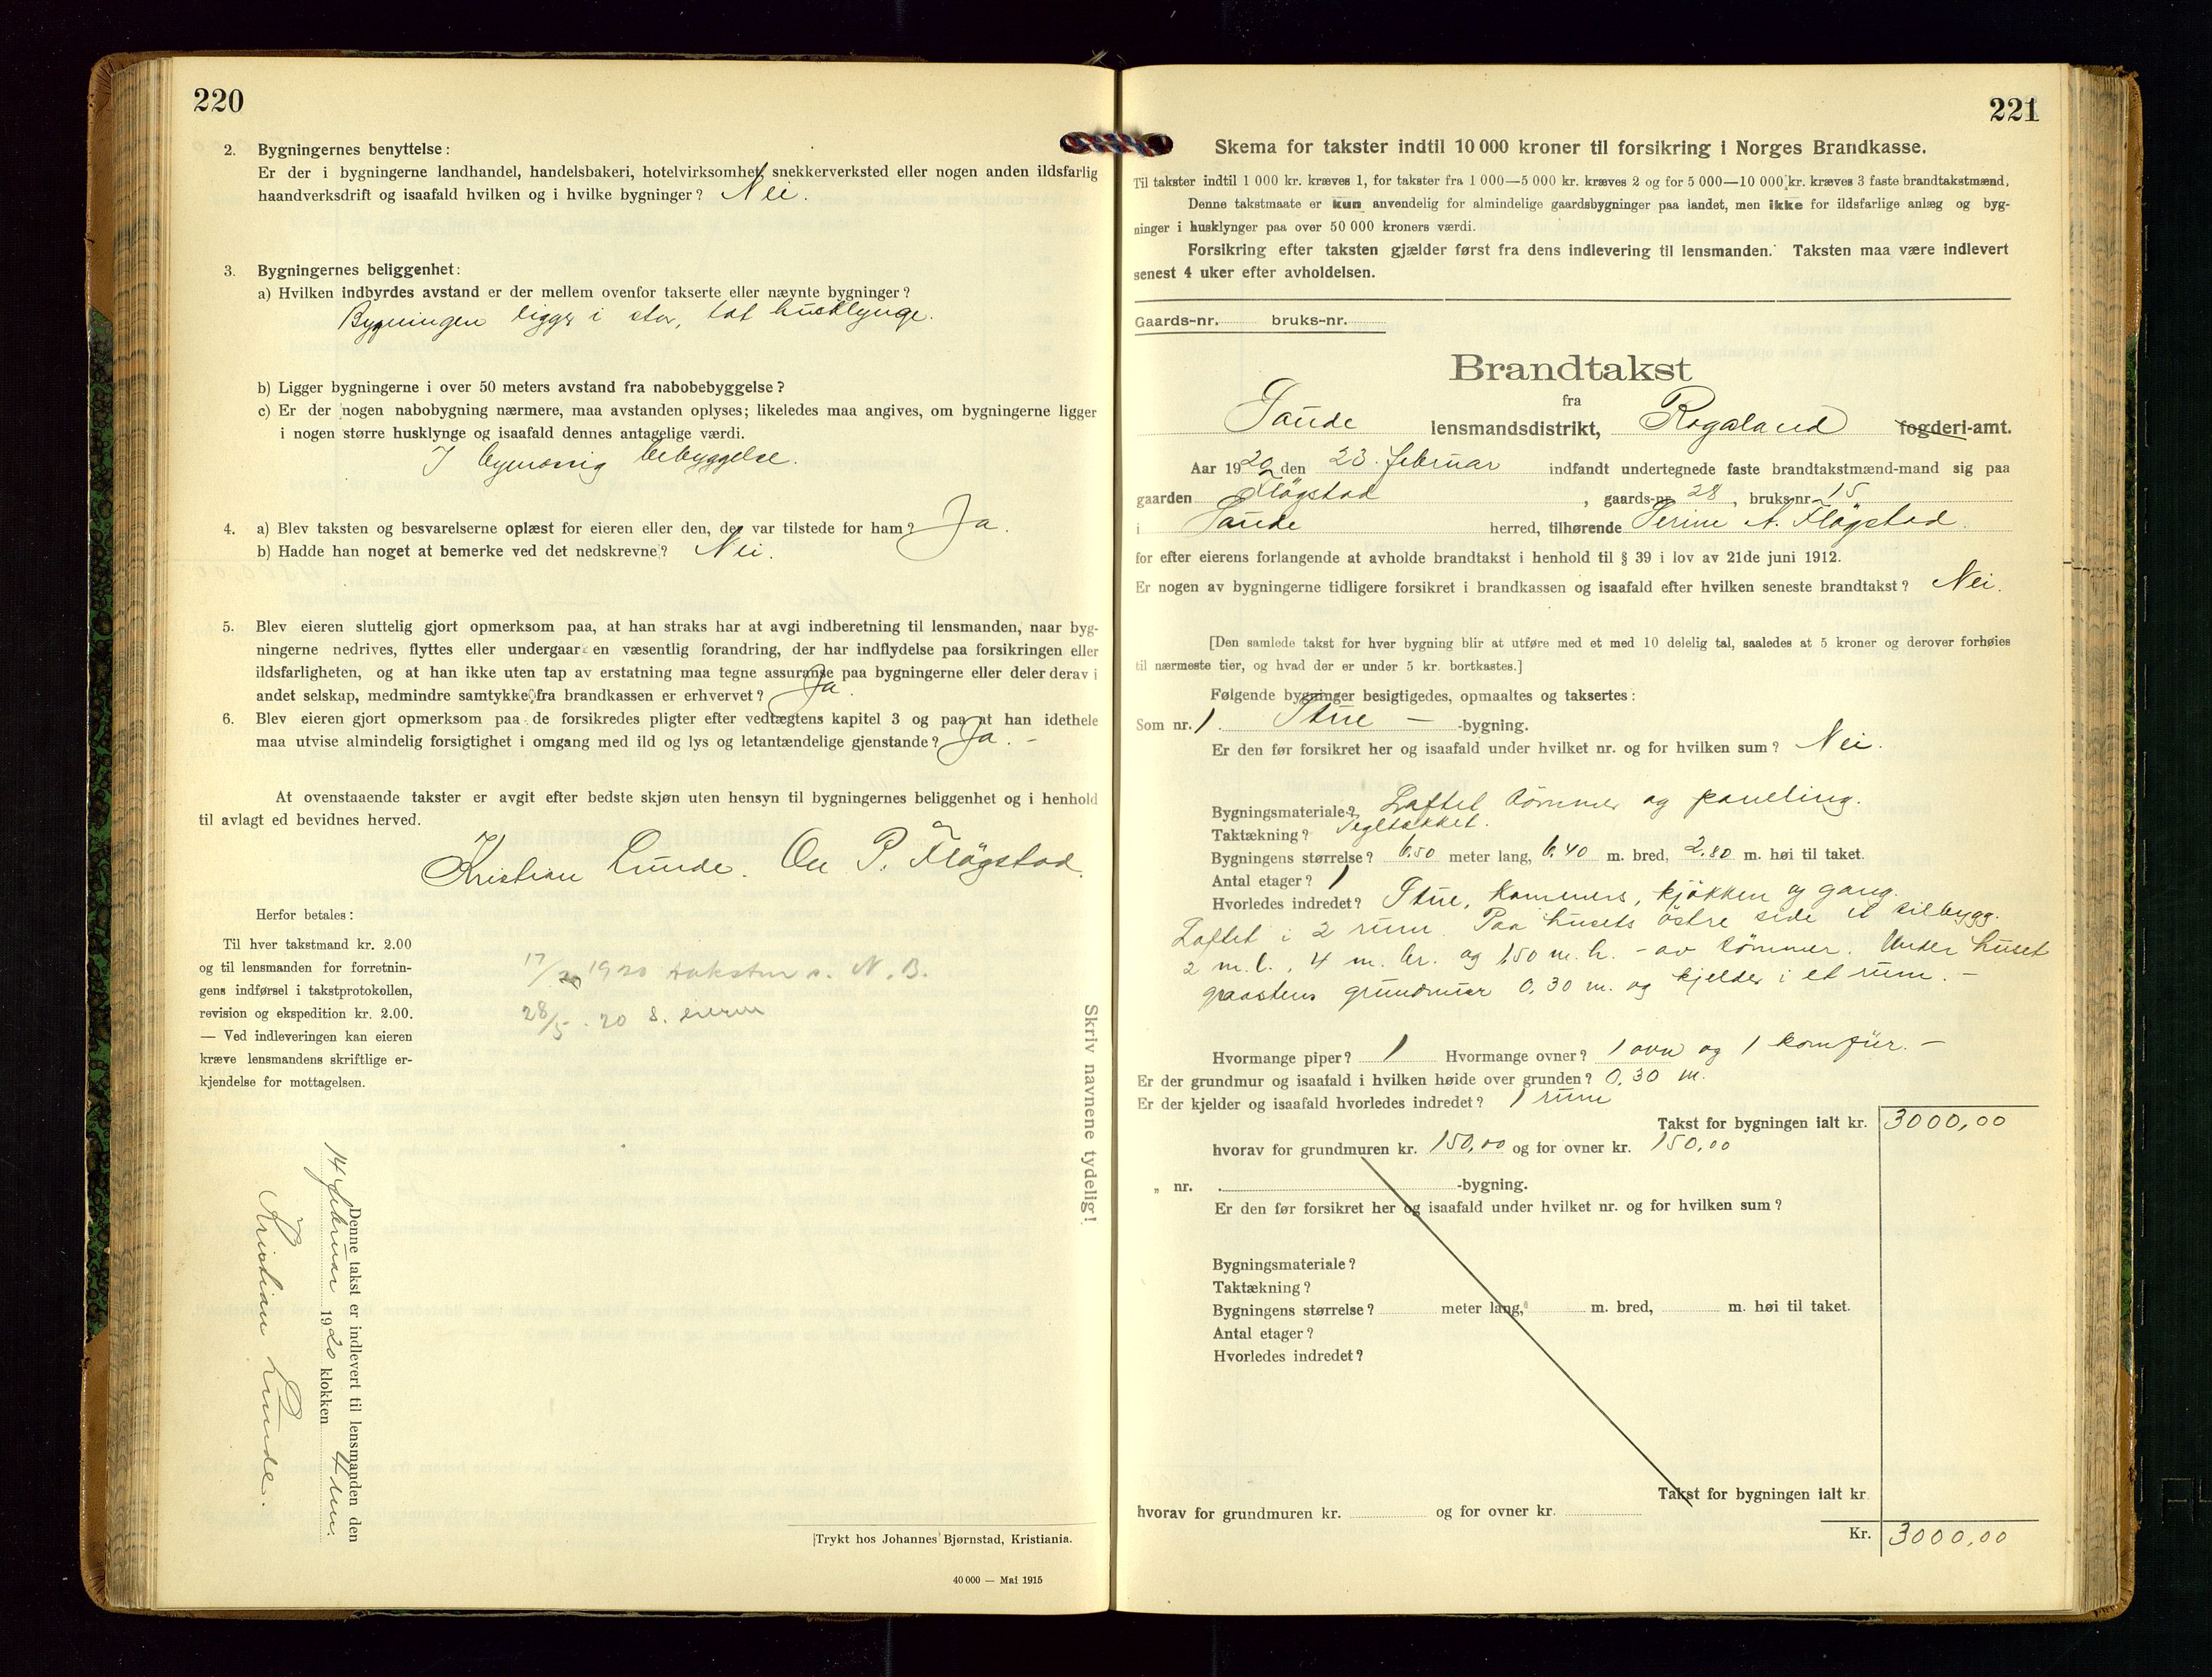 220
2. Bygningernes benyttelse:
Er der i bygningerne landhandel, handelsbakeri, hotelvirksomhet, snekkerverksted eller nogen anden ildsfarlig
haandverksdrift og isaafald hvilken og i hvilke bygninger? Nei.
3. Bygningernes beliggenhet:
a) Hvilken indbyrdes avstand er der mellem ovenfor takserte eller nævnte bygninger?
Bygningen ligger i stor, tæt husklynge.
b) Ligger bygningerne i over 50 meters avstand fra nabobebyggelse?
c) Er der nogen nabobygning nærmere, maa avstanden oplyses; likeledes maa angives, om bygningerne ligger
i nogen større husklynge og isaafald dennes antagelige værdi.
I bymæssig bebyggelse.
4. a) Blev taksten og besvarelserne oplæst for eieren eller den, der var tilstede for ham? Ja.
b) Hadde han noget at bemerke ved det nedskrevne? Nei.
5. Blev eieren sluttelig gjort opmerksom paa, at han straks har at avgi indberetning til lensmanden, naar byg-
ningerne nedrives, flyttes eller undergaar en væsentlig forandring, der har indflydelse paa forsikringen eller
ildsfarligheten, og at han ikke uten tap av erstatning maa tegne assuranse paa bygningerne eller deler derav i
andet selskap, medmindre samtykke fra brandkassen er erhvervet? Ja.
6. Blev eieren gjort opmerksom paa de forsikredes pligter efter vedtægtens kapitel 3 og paa at han idethele
maa utvise almindelig forsigtighet i omgang med ild og lys og letantændelige gjenstande? Ja. -
At ovenstaaende takster er avgit efter bedste skjøn uten hensyn til bygningernes beliggenhet og i henhold
til avlagt ed bevidnes herved.
Kristian Lunde. On P. Fløgstad.
Herfor betales:
Til hver takstmand kr. 2.00
og til lensmanden for forretnin-
gens indførsel i takstprotokollen,
revision og ekspedition kr. 2.00.
— Ved indleveringen kan eieren
kræve lensmandens skriftlige er-
kjendelse for mottagelsen.
1920 taksten s. N. B.
28/5 - 20 s. eieren
Skriv navnene tydelig!
Denne takst er indlevert til lensmanden den
14 februar 1920 klokken 4 em.
Kristian Lunde.
Trykt hos Johannes Bjørnstad, Kristiania.
40 000 — Mai 1915
221
Skema for takster indtil 10 000 kroner til forsikring i Norges Brandkasse.
Til takster indtil 1 000 kr. kræves 1, for takster fra 1 000—5 000 kr. kræves 2 og for 5 000—10 000 kr. kræves 3 faste brandtakstmænd,
Denne takstmaate er kun anvendelig for almindelige gaardsbygninger paa landet, men ikke for ildsfarlige anlæg og byg-
ninger i husklynger paa over 50 000 kroners værdi.
Forsikring efter taksten gjælder først fra dens indlevering til lensmanden. Taksten maa være indlevert
senest 4 uker efter avholdelsen.
Gaards-nr. bruks-nr.
Brandtakst
fra
Saude lensmandsdistrikt, Rogaland fogderi-amt.
Aar 1920 den 23. februar indfandt undertegnede faste brandtakstmænd-mand sig paa
gaarden Fløgstad, gaards-nr. 28, bruks-nr. 15
i Saude herred, tilhørende Serine A. Fløgstad.
for efter eierens forlangende at avholde brandtakst i henhold til § 39 i lov av 21de juni 1912.
Er nogen av bygningerne tidligere forsikret i brandkassen og isaafald efter hvilken seneste brandtakst? Nei.
[Den samlede takst for hver bygning blir at utføre med et med 10 delelig tal, saaledes at 5 kroner og derover forhøies
til nærmeste tier, og hvad der er under 5 kr. bortkastes.]
Følgende bygninger besigtigedes, opmaaltes og taksertes:
Som nr. 1. Stue — -bygning.
Er den før forsikret her og isaafald under hvilket nr. og for hvilken sum? Nei.
Bygningsmateriale? Laftet tømmer og paneling.
Taktækning? Tegltækket.
Bygningens størrelse? 6.50 meter lang, 6.40 m. bred, 2.80 m. høi til taket.
Antal etager? 1
Hvorledes indredet? Stue, kammers, kjøkken og gang.
Loftet i 2 rum. Paa husets østre side et tilbygg.
2 m.l., 4 m. br. og 1,50 m. h. - av tømmer. Under huset
graastens grundmur 0.30 m. og kjelder i et rum. -
Hvormange piper? 1 Hvormange ovner? 1 ovn og 1 komfur. -
Er der grundmur og isaafald i hvilken høide over grunden? 0.30 m.
Er der kjelder og isaafald hvorledes indredet? 1 rum
Takst for bygningen ialt kr. 3000,00
hvorav for grundmuren kr. 150,00 og for ovner kr. 150,00
„ nr. . -bygning.
Er den før forsikret her og isaafald under hvilket nr. og for hvilken sum?
Bygningsmateriale?
Taktækning?
Bygningens størrelse? meter lang, m. bred, m. høi til taket.
Antal etager?
Hvorledes indredet?
Takst for bygningen ialt kr.
hvorav for grundmuren kr. og for ovner kr.
Kr. 3000,00